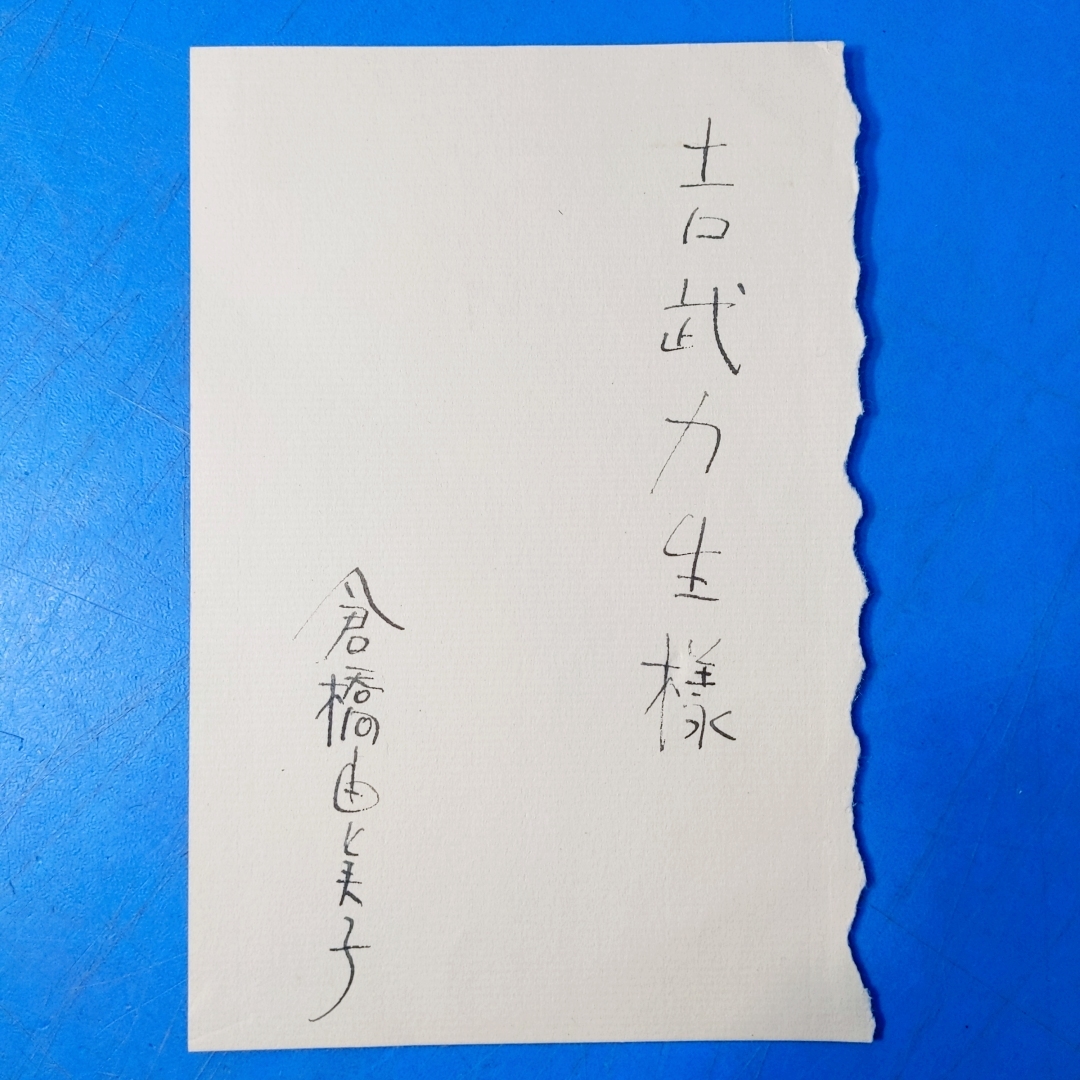 吉武力生様
倉橋由美子